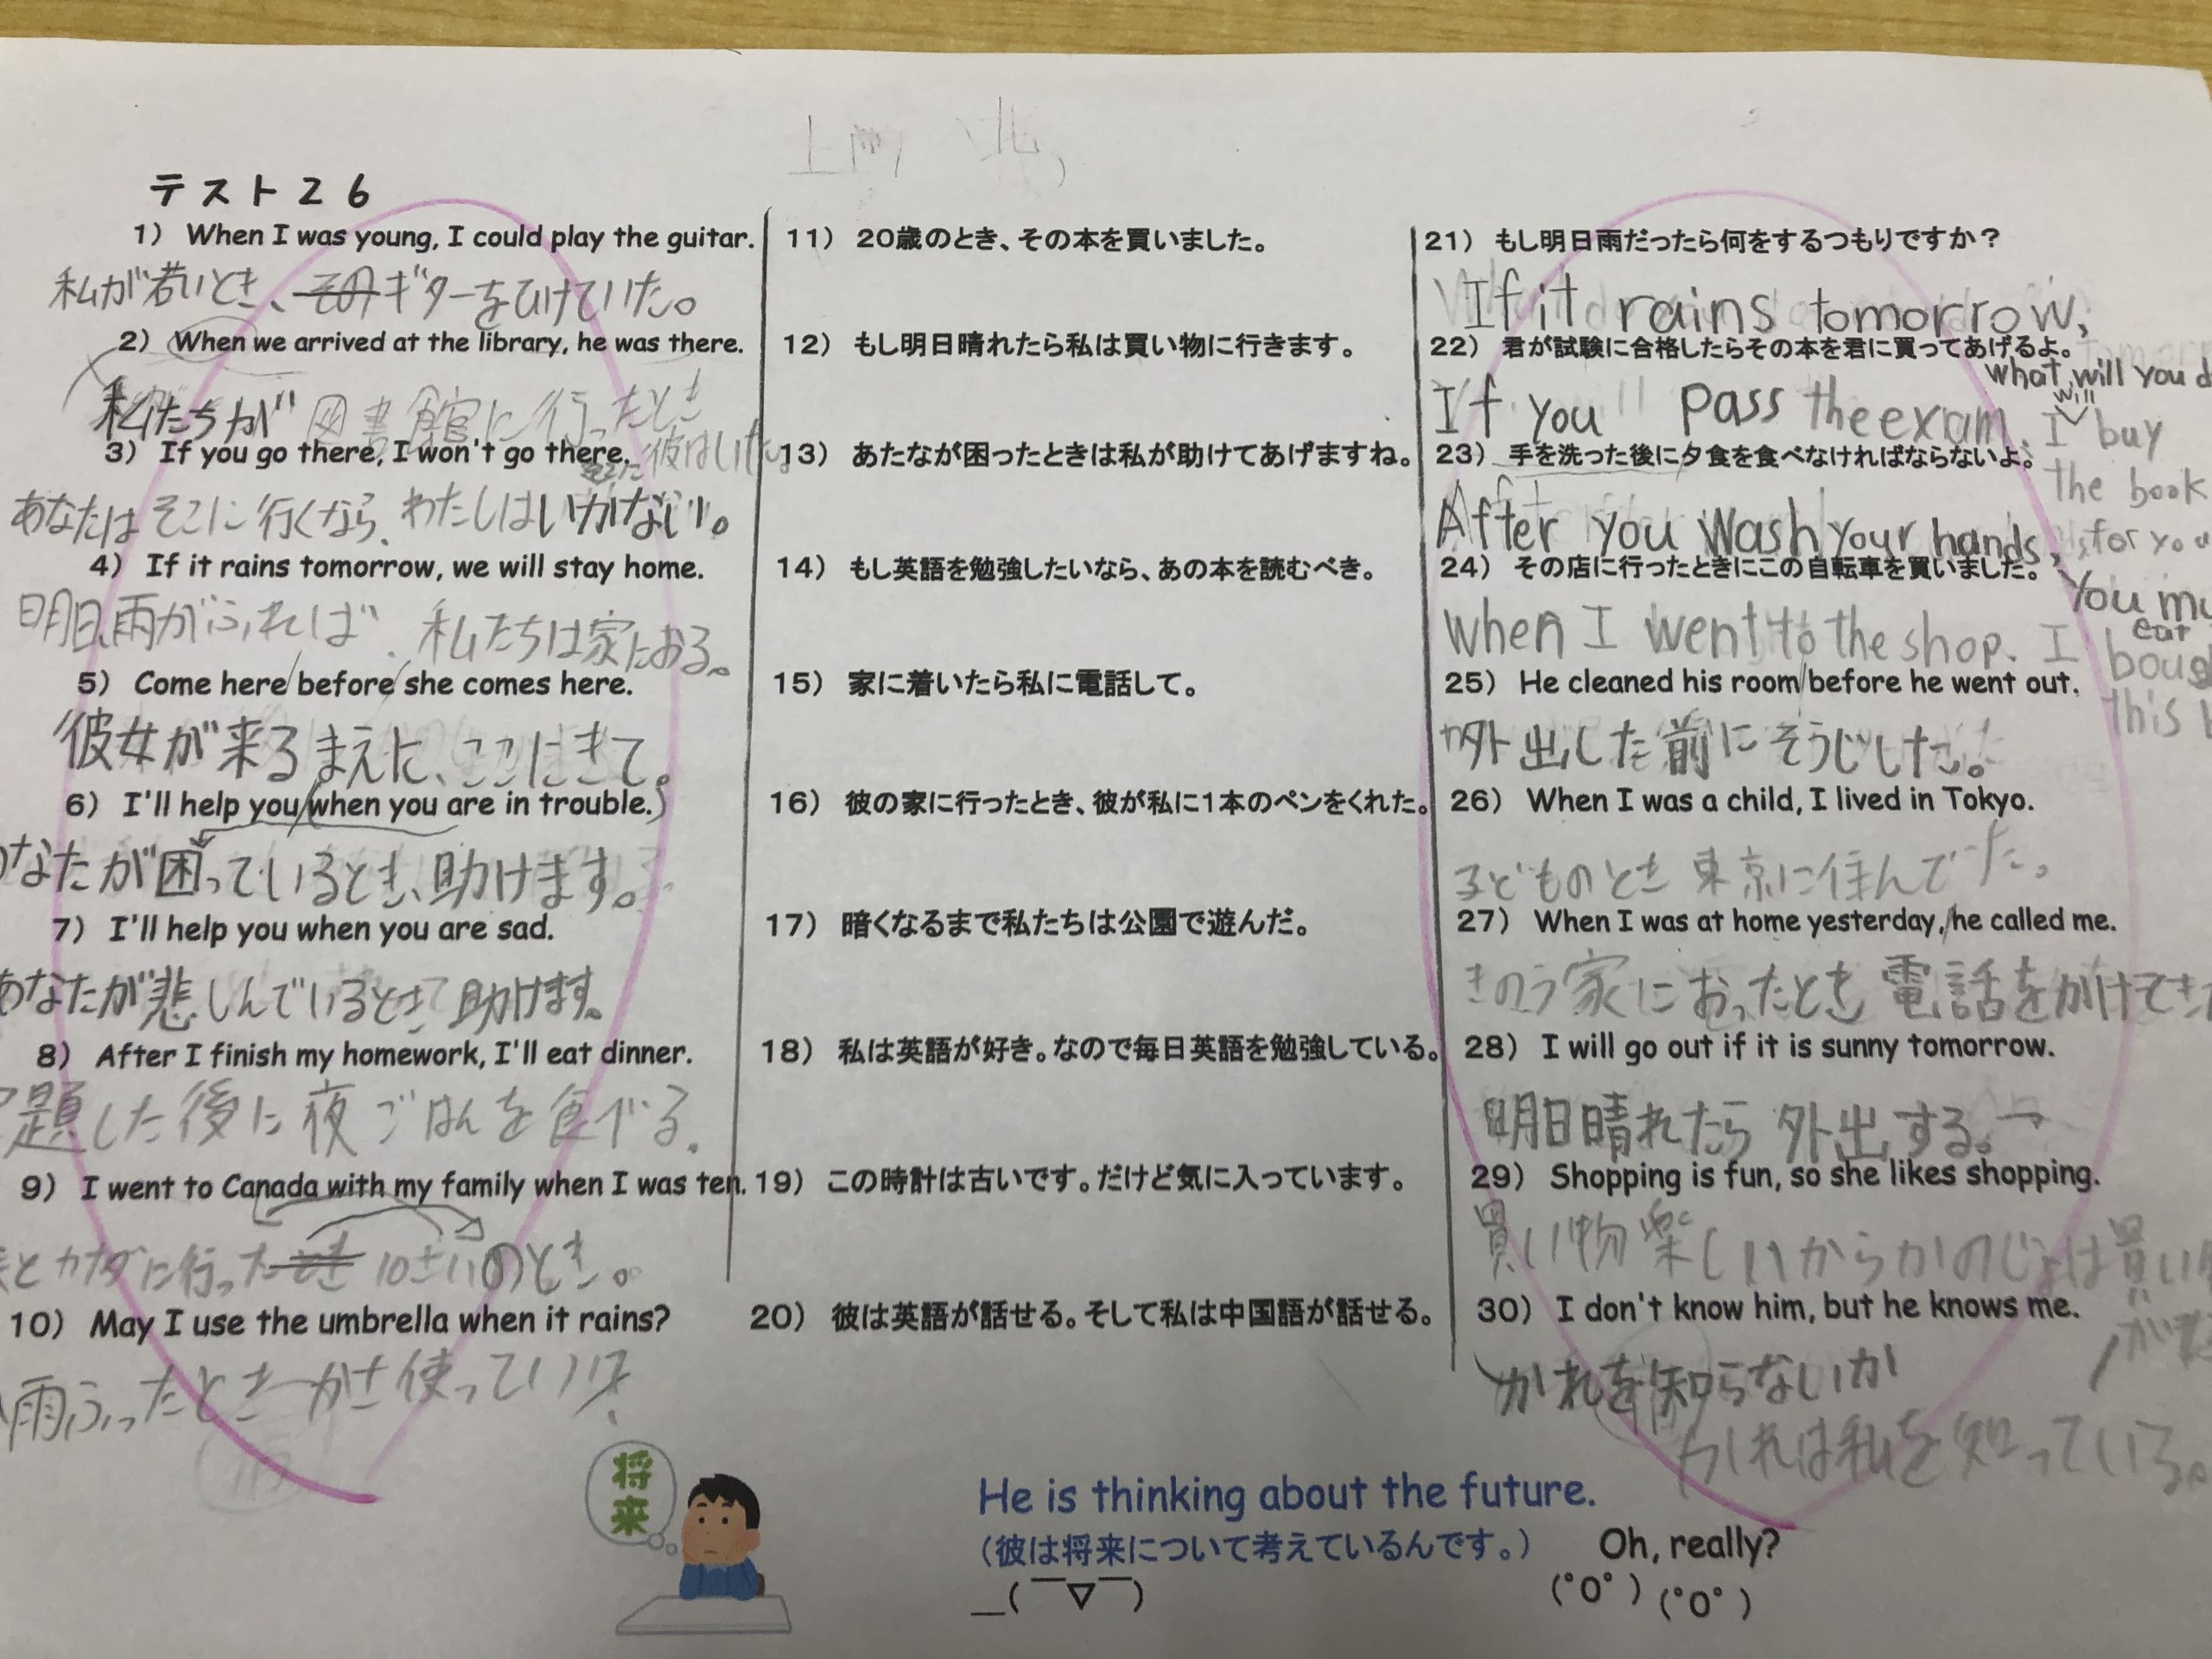 テスト26
1) When I was young, I could play the guitar.
私が若いとき、ギターをひけていた。
2) When we arrived at the library, he was there.
私たちが図書館に行ったとき
彼はいた。
3) If you go there, I won't go there.
あなたはそこに行くなら、わたしはいかない。
4) If it rains tomorrow, we will stay home.
明日、雨がふれば、私たちは家におる。
5) Come here before she comes here.
彼女が来るまえに、ここにきて。
6) I'll help you when you are in trouble.
なたが困っているとき、助けます。
7) I'll help you when you are sad.
あなたが悲しんでいるとき助けます。
8) After I finish my homework, I'll eat dinner.
題した後に夜ごはんを食べる。
9) I went to Canada with my family when I was ten.
とカナダに行った 10さいのとき。
10) May I use the umbrella when it rains?
雨ふったときかさ使っていい?
11) 20歳のとき、その本を買いました。
12) もし明日晴れたら私は買い物に行きます。
13) あたなが困ったときは私が助けてあげますね。
14) もし英語を勉強したいなら、あの本を読むべき。
15) 家に着いたら私に電話して。
16) 彼の家に行ったとき、彼が私に1本のペンをくれた。
17) 暗くなるまで私たちは公園で遊んだ。
18) 私は英語が好き。なので毎日英語を勉強している。
19) この時計は古いです。だけど気に入っています。
20) 彼は英語が話せる。そして私は中国語が話せる。
21) もし明日雨だったら何をするつもりですか?
If it rains tomorrow,
what will you d
22) 君が試験に合格したらその本を君に買ってあげるよ。
If you pass the exam, I will buy
the book
for you
23) 手を洗った後に夕食を食べなければならないよ。
After you wash your hands,
You mu
eat
24) その店に行ったときにこの自転車を買いました。
when I went to the shop. I boug
this
25) He cleaned his room before he went out.
外出した前にそうじした。
26) When I was a child, I lived in Tokyo.
子どものとき東京に住んでた。
27) When I was at home yesterday, he called me.
きのう家におったとき電話をかけてき
28) I will go out if it is sunny tomorrow.
明日晴れたら外出する。→
29) Shopping is fun, so she likes shopping.
買い物楽しいからかのじょは買い
が
30) I don't know him, but he knows me.
かれを知らないが
かれは私を知っている。
将来
He is thinking about the future.
(彼は将来について考えているんです。)
Oh, really?
_(￣▽￣)
(°O°) (°O°)